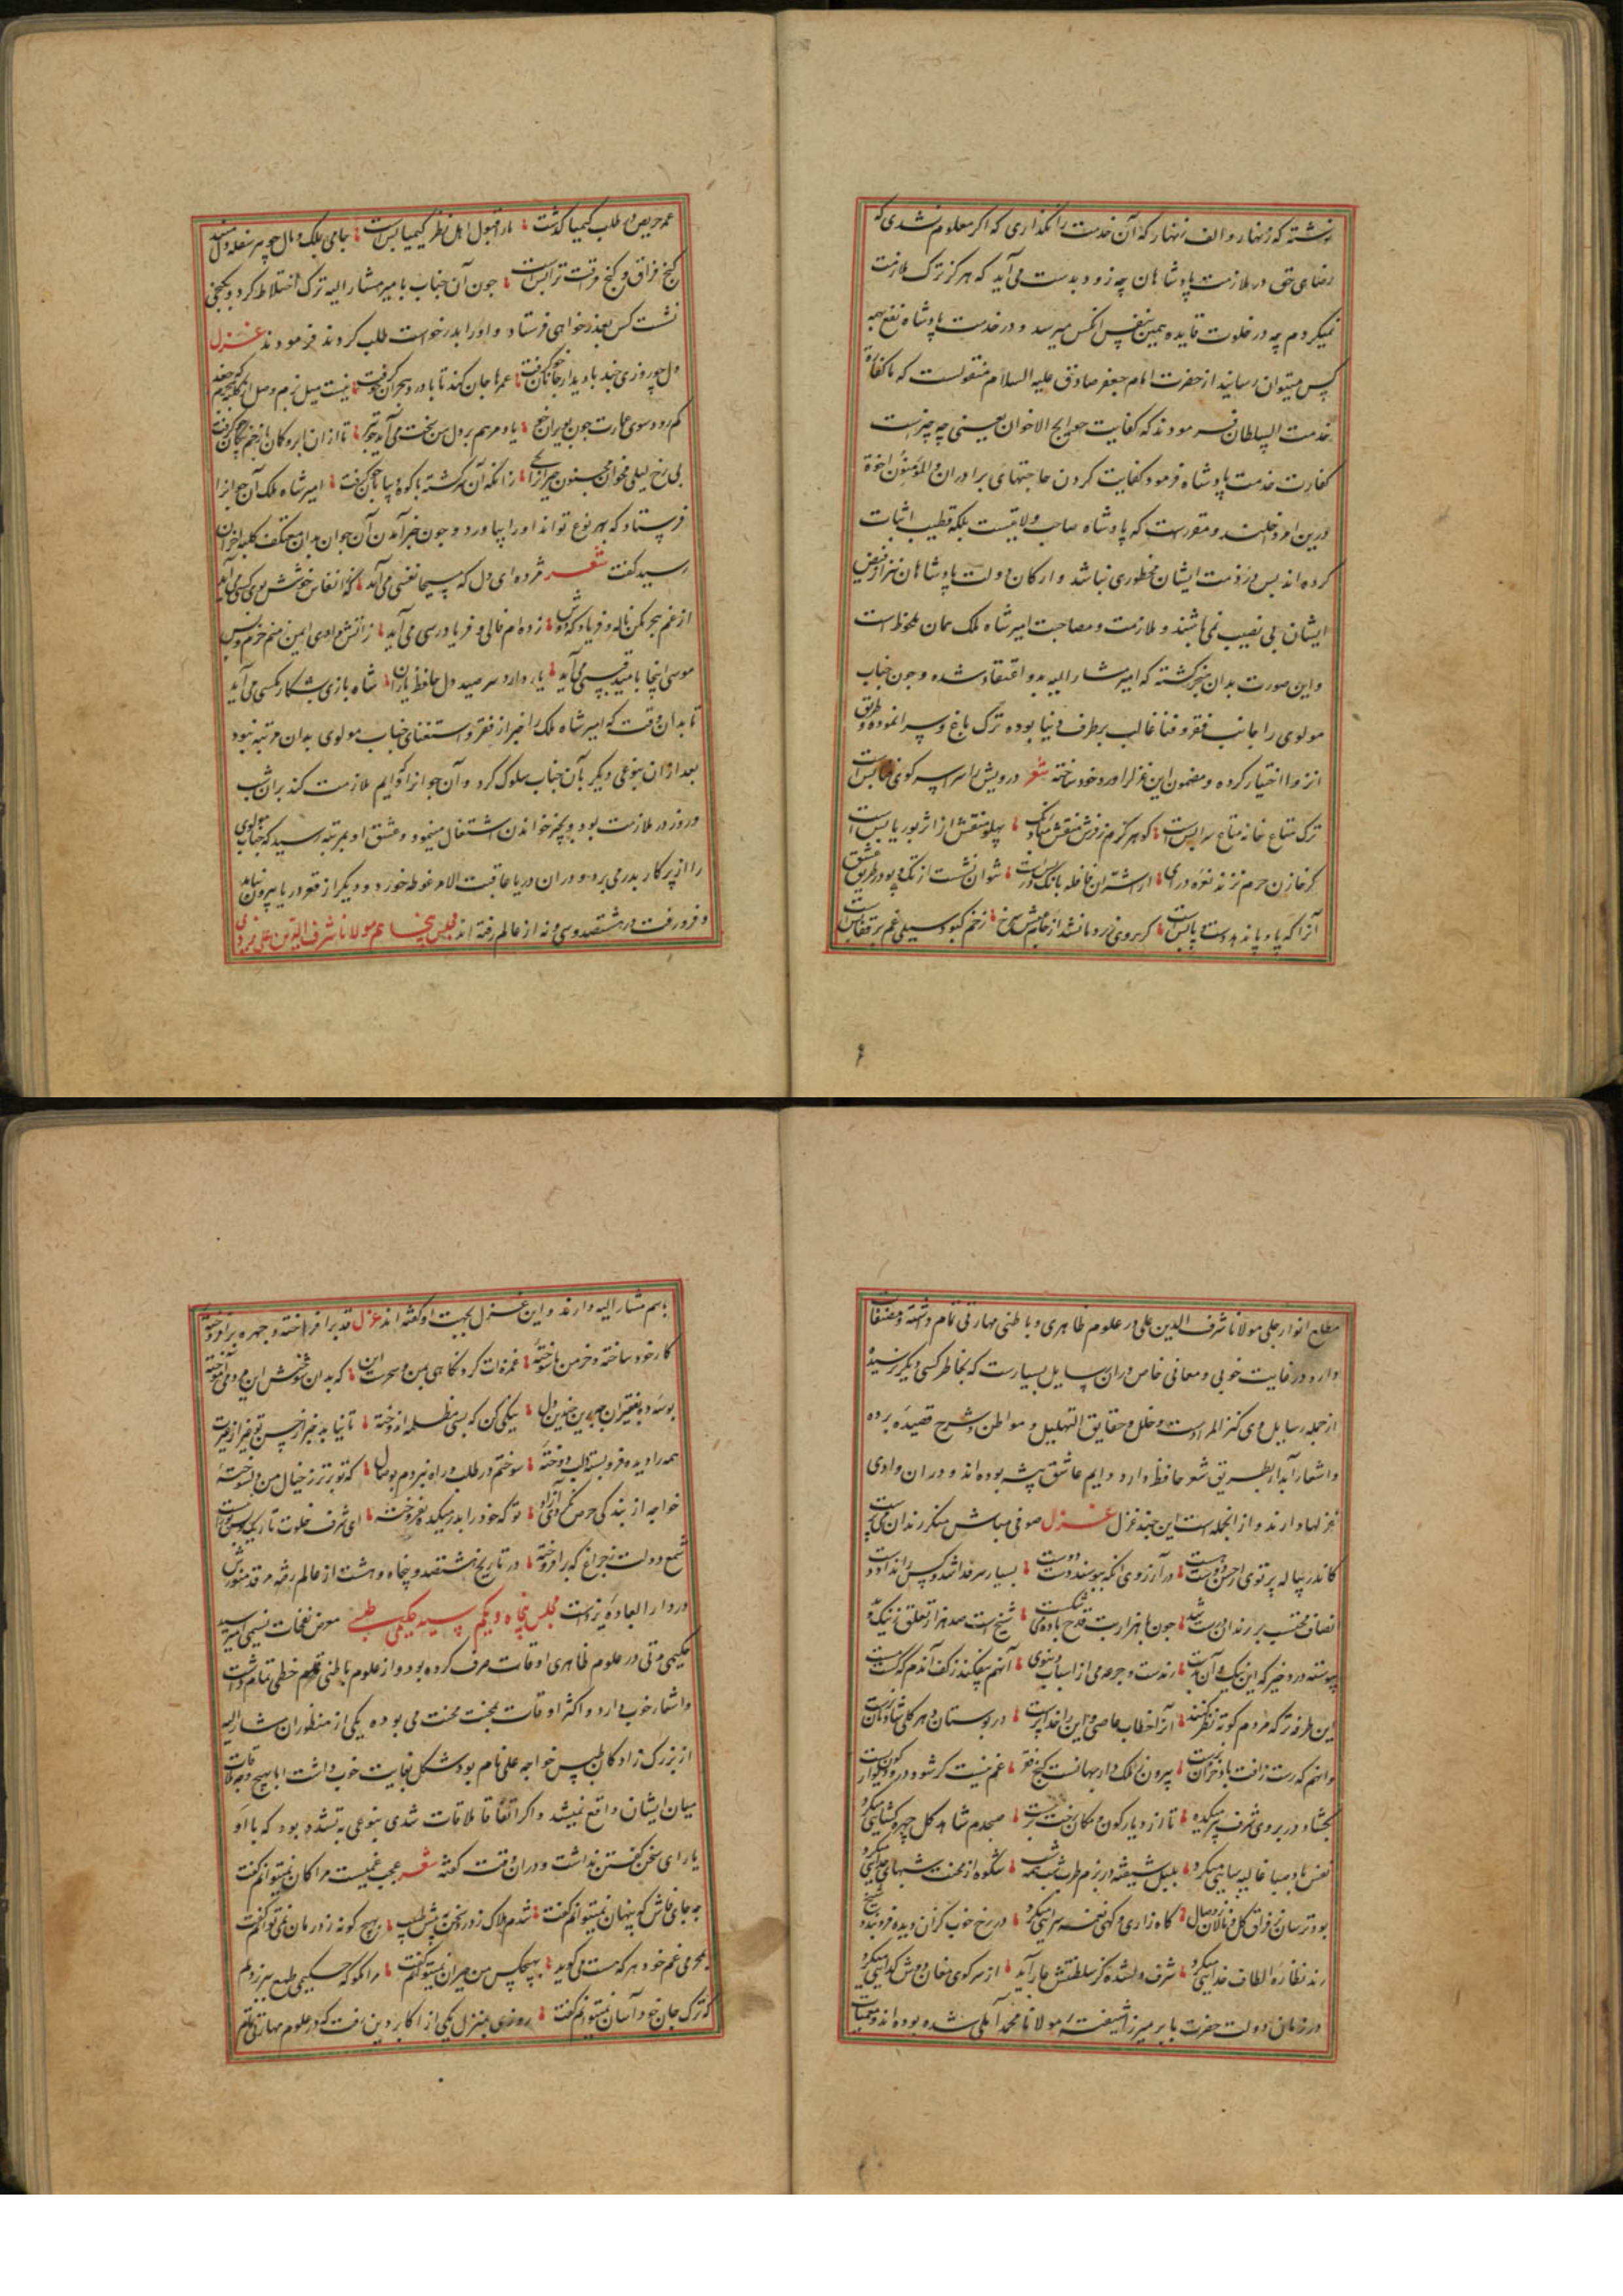 نوشته که زنهار و الف زنهار که آن خدمت را نگذاری که اگر معلوم نشدی که
رضای حق در ملازمت پادشاهان چه زود بدست می آید که هرگز ترک ملازمت
نمیکردم چه در خلوت فایده همین بنفس انکس میرسد و در خدمت پادشاه نفع بهمه
کس میتوان رسانید از حضرت امام جعفر صادق علیه السلام منقولست که ما کفارة
خدمت السلطان فرمودند که کفایت حوایج الاخوان یعنی چه چیزست
کفارت خدمت پادشاه فرمود کفایت کردن حاجتهای برادران و المؤمنون اخوة
درین امر داخلند و مقررست که پادشاه صاحب ولایتست بلکه قطبیت اثبات
کرده اند پس در خدمت ایشان محظوری نباشد و ارکان دولت پادشاهان نیز از فیض
ایشان بی نصیب نمی باشند و ملازمت و مصاحبت امیر شاه ملک همان ملحوظ است
و این صورت بدان منجر گشته که امیر مشار الیه بدو اعتقاد شده و چون جناب
مولوی را جانب فقر و فنا غالب بر طرف دنیا بوده ترک باغ و سرا نموده و طریق
انزوا اختیار کرده و مضمون این غزل را ورد خود ساخته شعر درویش را سراسر کوی فنا بس است
ترک متاع خانه متاع سرا بس است کو هرگزم ز فرش منقش مباد رنگ پهلو منقش از اثر بوریا بس است
گر خازن حرم نزند نعره درای از اشتران قافله بانگ درا بس است نتوان نشست از تک و پو در طریق عشق
آنرا که پاوپا ندهد دست و پا بس است گر روی زرد ما نشد از جام عیش سرخ زخم کبود سیلی غم بر قفا بس است
عمر حریص در طلب کیمیا گذشت ما را قبول اهل نظر کیمیا بس است جامی بملک و مال چو هر سفله دل مبند
کنج فراق و گنج قناعت ترا بس است چون آن جناب با میر مشار الیه ترک اختلاط کرد و بکنجی
نشست کس بعذر خواهی فرستاد و او را بدر خواست طلب کردند فرمودند غزل
دل چو روزی چند با دیدار جانان خو گرفت عمرها جان کند تا با درد هجران خو گرفت نیست میل بزم وصل آنرا که بی‌هم چو جغد
کم رود سوی عمارت چون بویران خو گرفت یاد مرهم بر دل من سخت می آید چو تیر تا از آن ابرو کمان با زخم پیکان خو گرفت
بی رخ لیلی مخوان مجنون حیرانرا بحی زانکه آن سرگشته با کوه و بیابان خو گرفت امیر شاه ملک آن جوانرا
فرستاد که بهر نوع تواند او را بیاورد و چون خبر آمدن آن جوان بدان معتکف کلبه احزان
رسید گفت شعر مژده ای دل که مسیحا نفسی می آید که ز انفاس خوشش بوی کسی می آید
از غم هجر مکن ناله و فریاد که دوش زده ام فالی و فریاد رسی می آید ز آتش وادی ایمن نه منم خرم و بس
موسی اینجا بامید قبسی می آید یار دارد سر صید دل حافظ یاران شاه بازی بشکار مگسی می آید
تا بدان وقت که امیر شاه ملک را خبر از فقر و استغنای جناب مولوی بدان مرتبه نبود
بعد از آن بنوعی دیگر بآن جناب سلوک کرد و آن جوانرا گو دایم ملازمت کند بر آن شب
و روز در ملازمت بود و بچیز خواندن اشتغال مینمود و عشق او بمرتبه رسید که جناب مولوی
را از پرگار بدر می برد و در آن دریا عاقبت الامر غوطه خورد و دیگر از قعر دریا بیرون نیامد
و فرو رفت در هشتصد و سی و نه از عالم رفته اند مجلس پنجاهم مولانا شرف الدین علی یزدی
مطلع انوار جلی مولانا شرف الدین علی در علوم ظاهری و باطنی مهارتی تمام داشته و مصنفات
دارد در غایت خوبی و معانی خاص در آن رسایل بسیارست که بخاطر کسی دیگر نرسیده
از جمله رسایل وی کنز المرادست و حلل و حقایق التهلیل و مواطن و شرح قصیده برده
و اشعار آبدار بطریق شعر حافظ دارد و دایم عاشق پیشه بوده اند و در آن وادی
غزلها دارند و از انجمله است این چند غزل غزل صوفی مباش منکر رندان می پرست
کاندر پیاله پرتوی از حسن دوست هست در آرزوی آنکه ببوسند دوست دست بسیار سر فدا شد و کس را نداد دست
انصاف محتسب بر رندان درست شد چون با هزار بت قدح باده می شکست شیخ است صد هزار تعلق ز نیک و بد
پیوسته در دو خیر که این نیک و آن بدست رندست و جرعه می از اسباب دنیوی آنهم بیفکند ز کف آندم که گشت مست
این طرفه تر که مردم کوته نظر کنند آنرا خطاب عاصی و این را خدا پرست در بوستان دهر گلی شادمان نرست
وانهم که رست آفت باد خزان نرست بیرون ز ملک دار بها نست گنج فقر غم نیست گر شود در و دیوار کون پست
بگشاد در بروی شرف پیر میکده تا از دیار کون و مکان رخت بر ببست صبحدم شاهد گل چهره گشایی میکرد
نفس باد صبا غالیه سایی میکرد بلبل شیفته در بزم طرب شب همه شب شکوه از محنت شبهای جدایی میکرد
بود ترسان ز فراق گل و نالان ز وصال گاه زاری و گهی نغمه سرایی میکرد در رخ خوب گران دیده فرو بندد شیخ
رند نظاره الطاف خدایی میکرد شرف دلشده کز سلطنتش عار آید از سر کوی مغان دوش گدایی میکرد
در زمان دولت حضرت بابر میرزا شیفته مولانا محمد آملی شده بوده اند و معمیات
باسم مشار الیه دارند و این غزل بجهت او گفته اند غزل قد برافراخته و چهره برافروخته
کار خود ساخته و خرمن ما سوخته غمزه ات کرد نگاهی بمن و سحرست این که بدان شوخش این مردمی آموخته
بوسه ده بفقیران به ازین خونین دل نیکی کن که بسی مظلمه اندوخته تا نیابد خبر از حسن تو غیر از غیرت
همه را دیده فرو بسته و لب دوخته سوختم در طلب و راه نبردم بوصال که تو برتر ز خیال من دلسوخته
خواجه از بندگی حرص نگردی آزاد تو که خود را بدر میکده نفروخته ای شرف خلوت تاریک دلت روشن است
شمع دولت ز چراغ که برافروخته در تاریخ هشتصد و پنجاه و هشت از عالم رفته مرقد منورش
در دار العباده یزدست مجلس پنجاه و یکم سید حکیمی طبسی معرض نفحات نسیمی امیر سید
حکیمی مدتی در علوم ظاهری اوقات صرف کرده بود و از علوم باطنی هم حظی تمام داشت
و اشعار خوب دارد و اکثر اوقات بمحنت محبت می بوده یکی از منظوران مشار الیه
از بزرگ زادگان طبس خواجه علی نام بود شکل بغایت خوب داشت اما بهیچ وجه ملاقات
میان ایشان واقع نمیشد و اگر اتفاقا ملاقات شدی بنوعی بی خود شده بود که با او
یارای سخن گفتن نداشت و در آن وقت گفته شعر عجب غمیست مرا کان نمیتوانم گفت
چه جای فاش که پنهان نمیتوانم گفت شدم هلاک ز درد و بپیش طبیب بهیچ گونه ز درمان نمی توانم گفت
بمحرمی غم خود هر که هست می گوید بهیچکس من حیران نمیتوانم گفت مرا مگو که حکیمی طمع ببر ز دلم
که ترک جان خود آسان نمیتوانم گفت روزی بمنزل یکی از اکابر دین رفت که در علوم مهارتی تمام